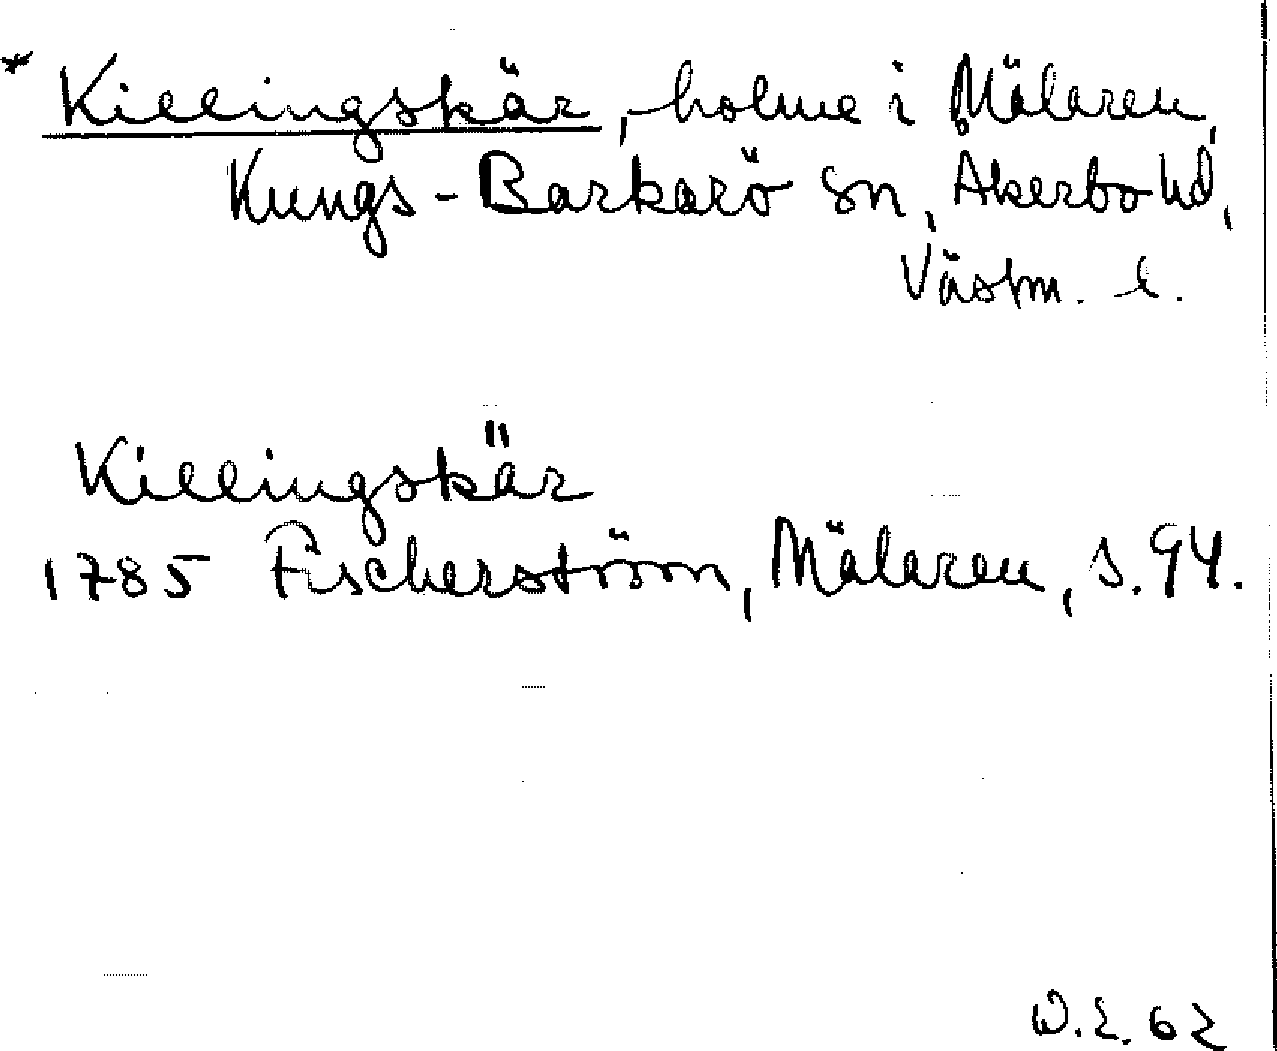 * Killingskär, holme i Mälaren,
Kungs-Barkarö sn, Åkerbo hd,
Västm. l.
Killingskär
1785 Fischerström, Mälaren, s. 94.
O.E. 62